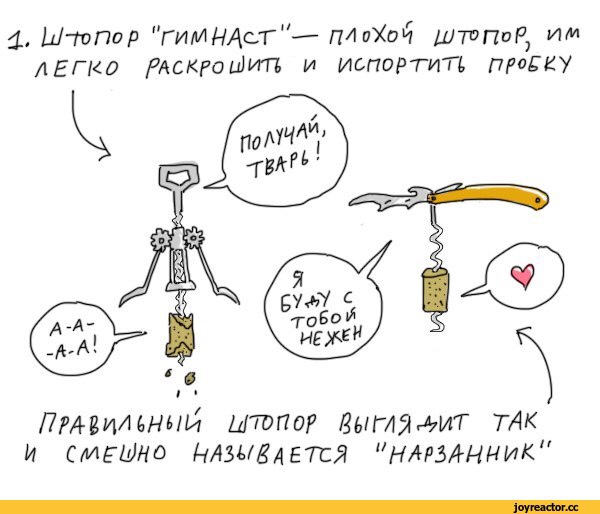 1. Штопор "гимнаст" — плохой штопор, им
легко раскрошить и испортить пробку
Получай,
тварь!
Я
буду с
тобой
нежен
А-А-
-А-А!
Правильный штопор выглядит так
и смешно называется "нарзанник"
joyreactor.cc